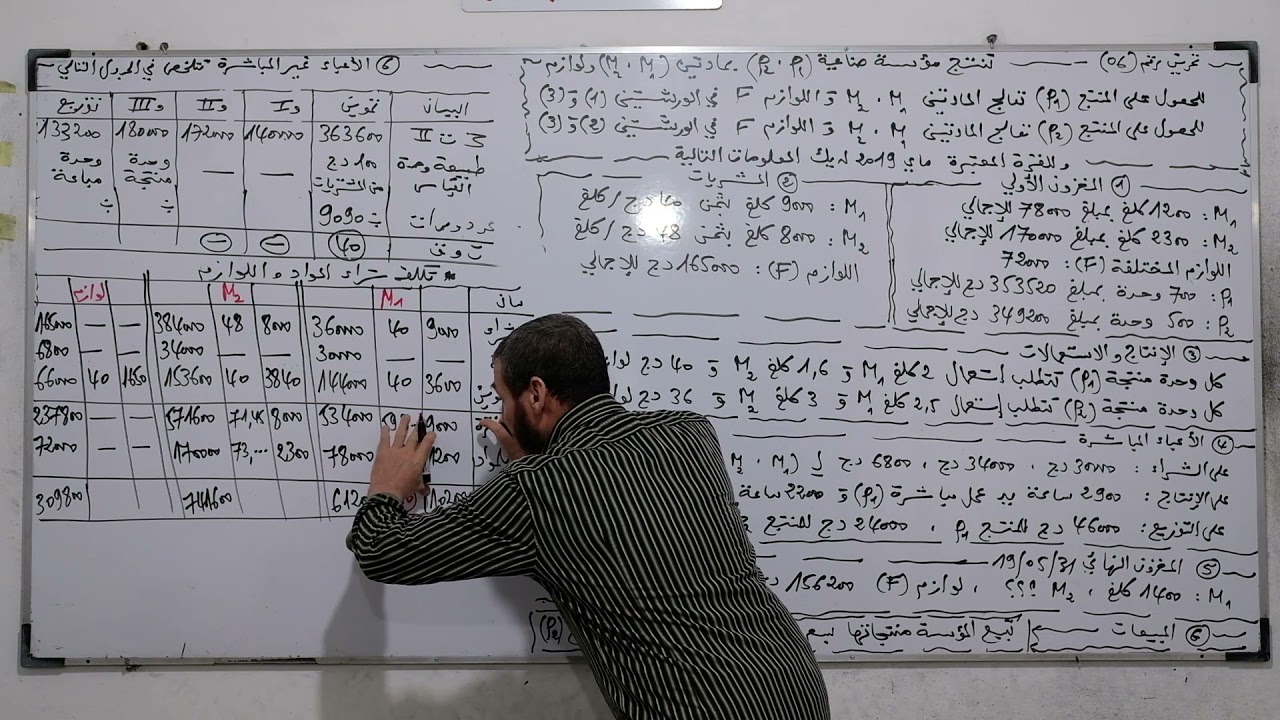 تمرين رقم (06) تنتج مؤسسة صناعية (P1 . P2) بمادتين (M1 . M2) ولوازم
للحصول على المنتج (P1) تعالج المادتين M1 . M2 و اللوازم F في الورشتين (1) و (3)
للحصول على المنتج (P2) تعالج المادتين M1 . M2 و اللوازم F في الورشتين (2) و (3)
والفترة المعتبرة ماي 2019 لديك المعلومات التالية
① المخزون الأولي
M1 : 1200 كلغ بمبلغ 78000 للإجمالي
M2 : 2300 كلغ بمبلغ 170000 للإجمالي
اللوازم المختلفة (F) : 72000
P1 : 700 وحدة بمبلغ 353520 دج للإجمالي
P2 : 500 وحدة بمبلغ 349200 دج للإجمالي
② المشتريات
M1 : 9000 كلغ بثمن 40 دج / كلغ
M2 : 8000 كلغ بثمن 48 دج / كلغ
اللوازم (F) : 165000 دج للإجمالي
③ الإنتاج و الاستعمالات
كل وحدة منتجة (P1) تتطلب إستعمال 2 كلغ M1 و 1,6 كلغ M2 و 40 دج
كل وحدة منتجة (P2) تتطلب إستعمال 2,5 كلغ M1 و 3 كلغ M2 و 36 دج
④ الأعباء المباشرة
على الشراء : 30000 دج ، 34000 دج ، 6800 دج لـ (M1 ، M2
على الإنتاج : 2900 ساعة يد عمل مباشرة (P1) و 2200 ساعة
على التوزيع : 46000 دج للمنتج P1 ، 24000 دج للمنتج
⑤ المخزون النهائي 19/05/31
M1 : 1400 كلغ ، M2 ؟؟؟ ، لوازم (F) 156200
⑥ المبيعات تبيع المؤسسة منتجاتها
(P2)
⑥ الأعباء غير المباشرة تتلخص في الجدول التالي
البيان تموين و I و II و III توزيع
م ت II 363600 140000 172000 180000 133200
طبيعة وحدة القياس 100 دج من المشتريات — — وحدة منتجة وحدة مباعة
9090
ت و ق 40 — —
* تكلفة شراء المواد و اللوازم
M1 M2 لوازم
9000 40 360000 8000 48 384000 — — 165000
— — 30000 — — 34000 — — 6800
3600 40 144000 3840 40 153600 1650 40 66000
9000 534000 8000 71,45 571600 — — 237800
1200 78000 2300 73,... 170000 — 72000
10200 741600 309800